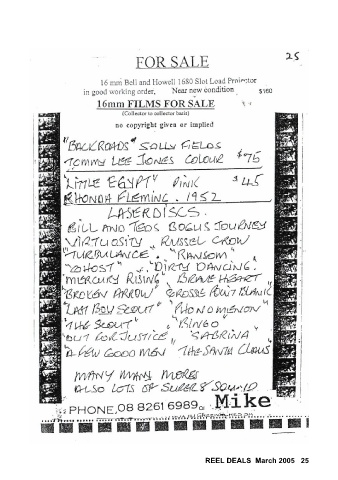 25
FOR SALE
16 mm Bell and Howell 1680 Slot Load Projector
in good working order. Near new condition $160
16mm FILMS FOR SALE
(Collector to collector basis)
no copyright given or implied
"BACKROADS" SALLY FIELDS
TOMMY LEE JONES COLOUR $75
"LITTLE EGYPT" PINK $45
RHONDA FLEMING. 1952
LASERDISCS.
BILL AND TEDS BOGUS JOURNEY
VIRTUOSITY, RUSSEL CROW
"TURBULANCE", "RANSOM"
"GHOST" DIRTY DANCING.
MERCURY RISING, BRAVE HEART
"BROKEN ARROW" GROSSE POINT BLANK
"LAST BOY SCOUT" "PHONOMENON"
"THE SCOUT" "BINGO"
OUT FOR JUSTICE" "SABRINA"
"A FEW GOOD MEN THE SANTA CLAUS
MANY MANY MORE
ALSO LOTS OF SUPER 8 SOUND
PHONE, 08 8261 6989 Mike
REEL DEALS March 2005 25